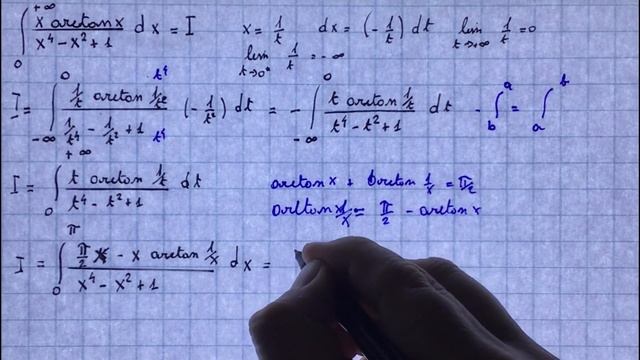 ∫₀^{+∞} (x arctan x)/(x⁴ − x² + 1) dx = I    x = 1/t    dx = (− 1/t) dt    lim_{t→+∞} 1/t = 0
lim_{t→0⁻} 1/t = −∞
I = ∫_{−∞}^{0} (1/t arctan 1/t)/(1/t⁴ − 1/t² + 1) t⁴/t⁴ (− 1/t²) dt = − ∫_{−∞}^{0} (t arctan 1/t)/(t⁴ − t² + 1) dt    − ∫_b^a = ∫_a^b
I = ∫₀^{+∞} (t arctan 1/t)/(t⁴ − t² + 1) dt    arctan x + arctan 1/x = π/2
arctan 1/x = π/2 − arctan x
I = ∫₀^π (π/2 x − x arctan 1/x)/(x⁴ − x² + 1) dx =